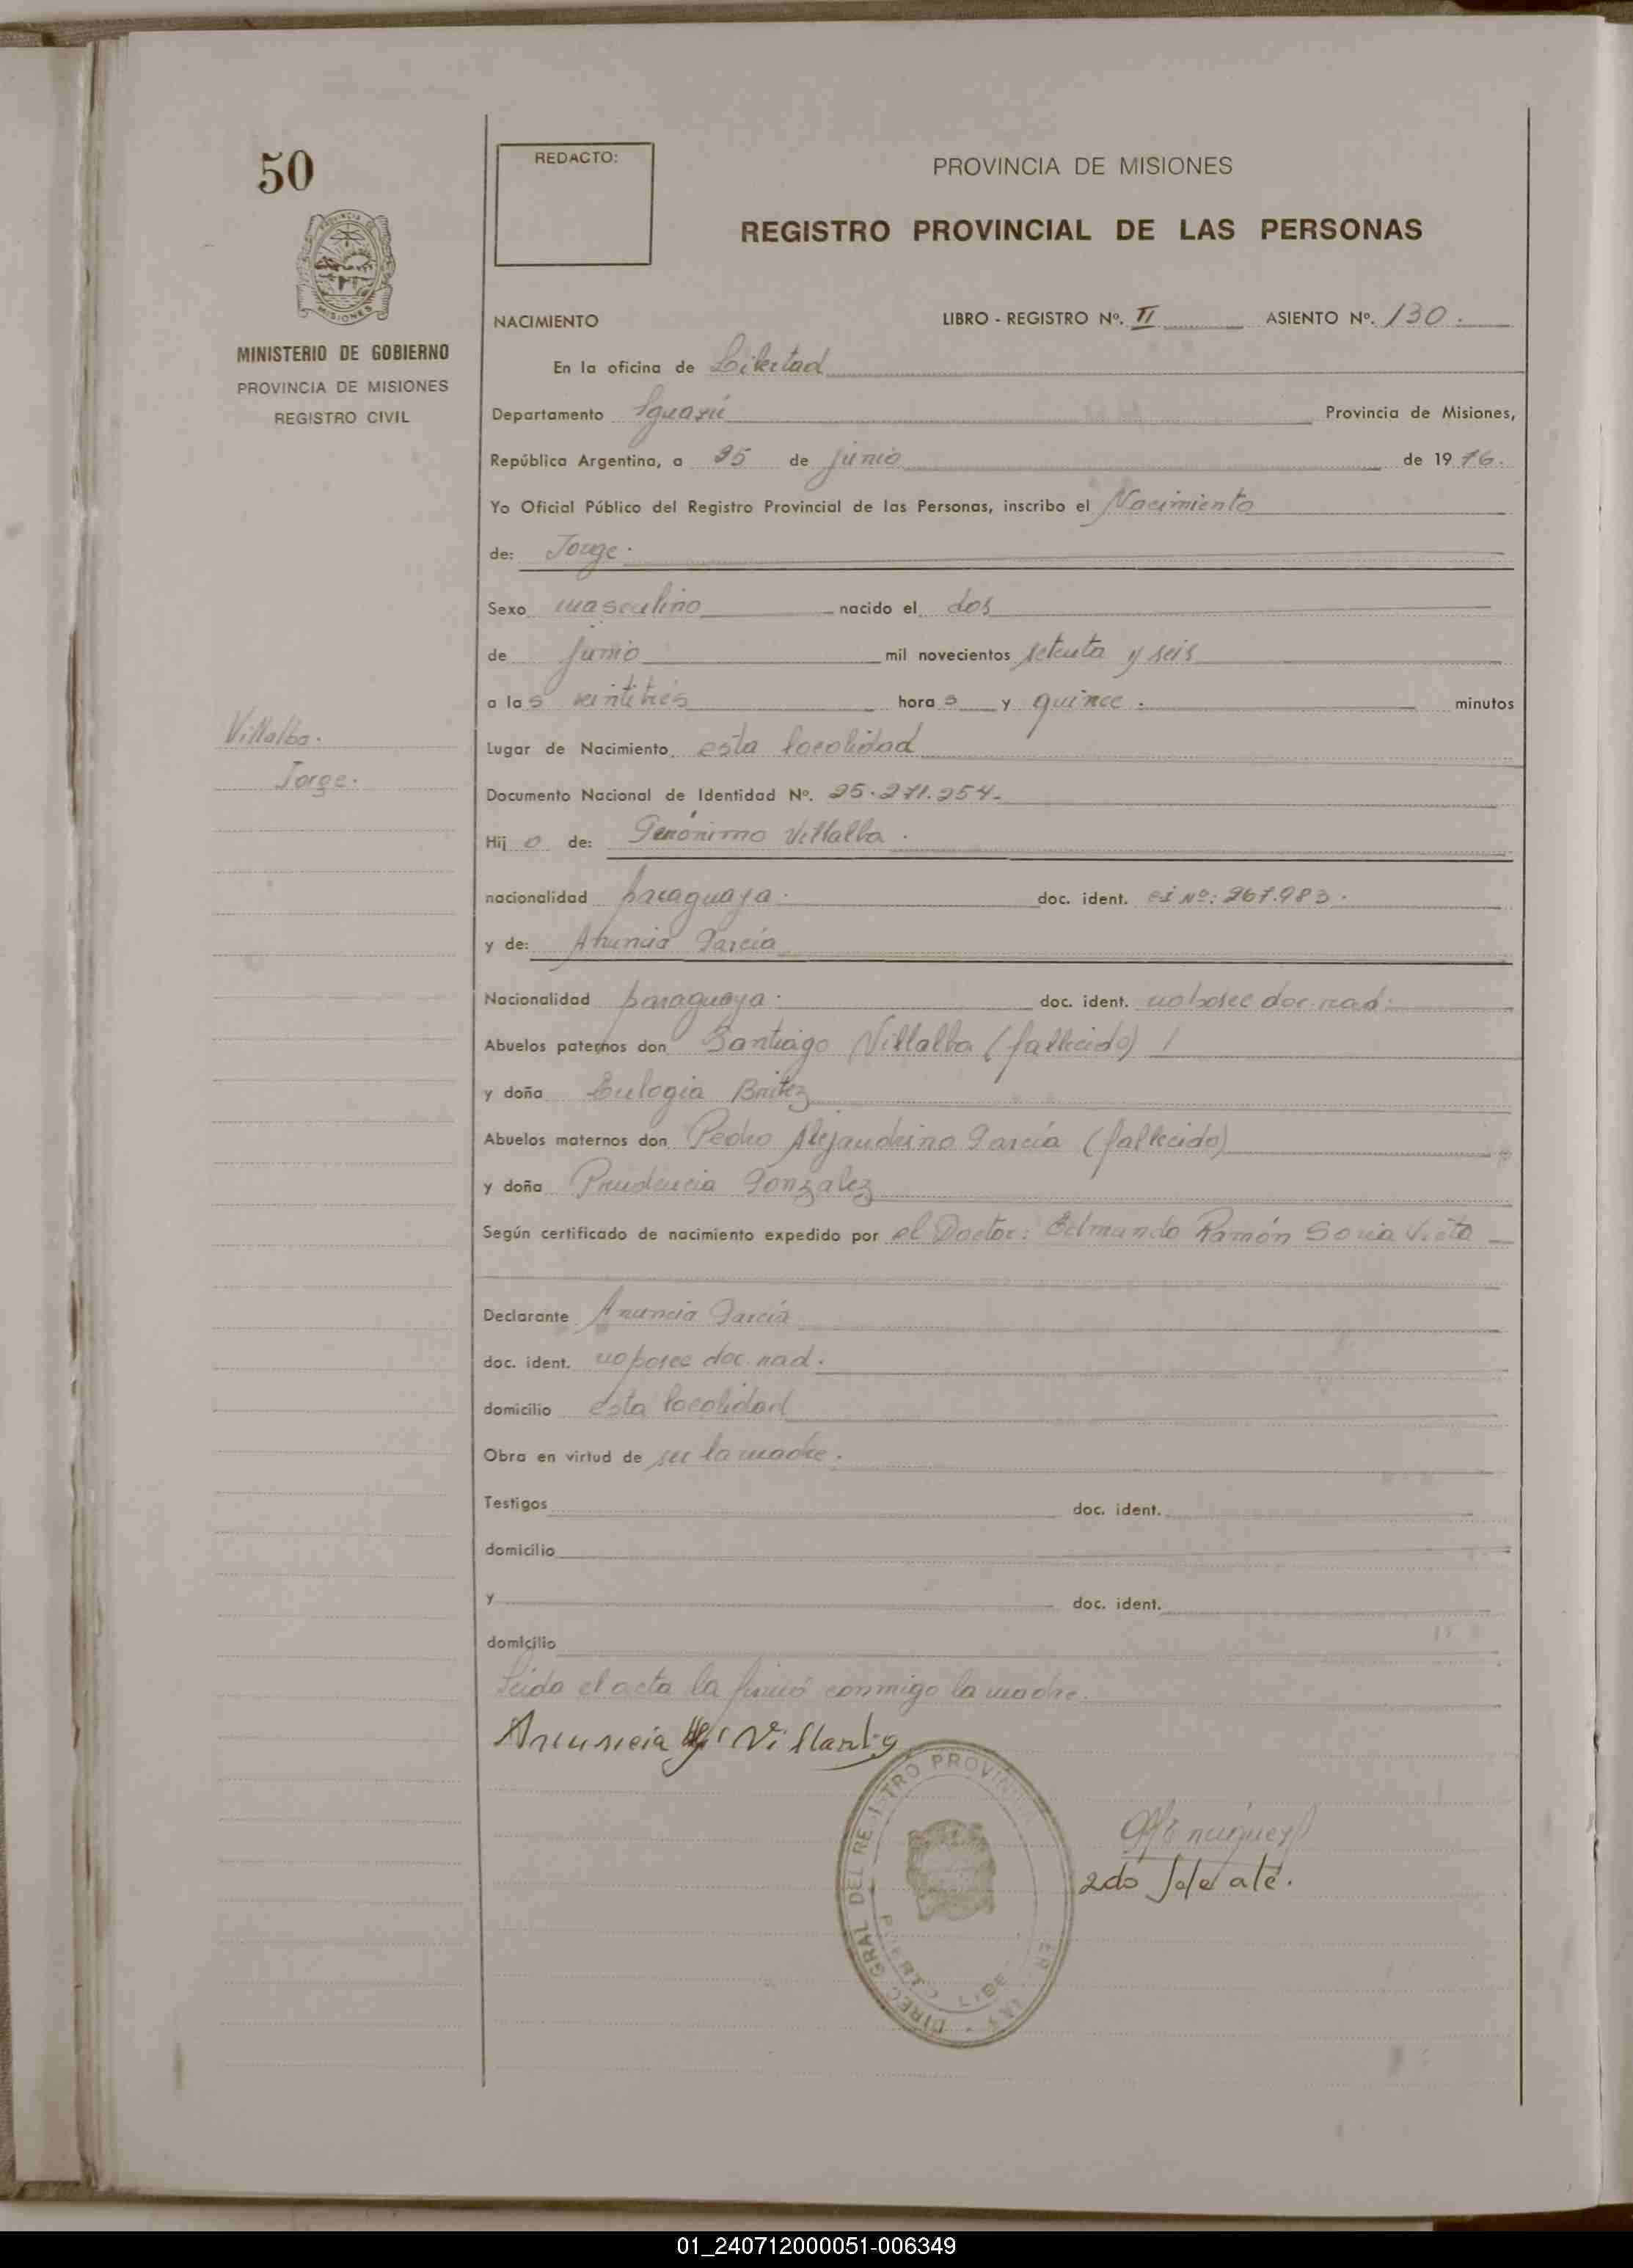 50
REDACTO:
PROVINCIA DE MISIONES
REGISTRO PROVINCIAL DE LAS PERSONAS
MISIONES
MINISTERIO DE GOBIERNO
PROVINCIA DE MISIONES
REGISTRO CIVIL
NACIMIENTO LIBRO - REGISTRO Nº. II ASIENTO Nº. 130.
En la oficina de Libertad
Departamento Iguazú Provincia de Misiones,
República Argentina, a 25 de junio de 1976.
Yo Oficial Público del Registro Provincial de las Personas, inscribo el Nacimiento
de: Jorge.
Sexo masculino nacido el dos
de junio mil novecientos setenta y seis
a las veintitrés horas y quince. minutos
Villalba.
Jorge.
Lugar de Nacimiento esta localidad
Documento Nacional de Identidad Nº. 25.271.254.
Hijo de: Gerónimo Villalba.
nacionalidad paraguaya. doc. ident. ci Nº: 267.983.
y de: Anuncia García
Nacionalidad paraguaya. doc. ident. no posee doc. nad.
Abuelos paternos don Santiago Villalba (fallecido)
y doña Eulogia Britez
Abuelos maternos don Pedro Alejandrino García (fallecido)
y doña Prudencia Gonzalez
Según certificado de nacimiento expedido por el Doctor: Edmundo Ramón Soria Vieta
Declarante Anuncia García
doc. ident. no posee doc. nad.
domicilio esta localidad
Obra en virtud de ser la madre.
Testigos doc. ident.
domicilio
y doc. ident.
domicilio
Leida el acta la firmó conmigo la madre.
Anuncia Villalba
DIREC GRAL DEL REGISTRO PROVINCIAL
2do Jefe
01_240712000051-006349